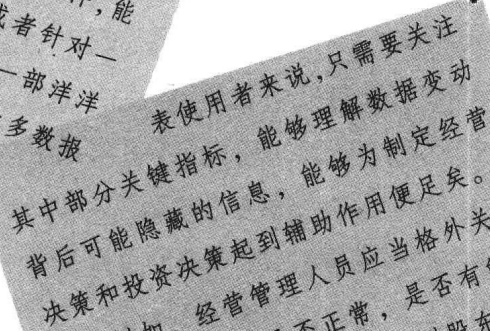 能
者针对一
一部洋洋
多数报
表使用者来说,只需要关注
其中部分关键指标，能够理解数据变动
背后可能隐藏的信息，能够为制定经营
决策和投资决策起到辅助作用便足矣。
经营管理人员应当格外关
正常，是否有